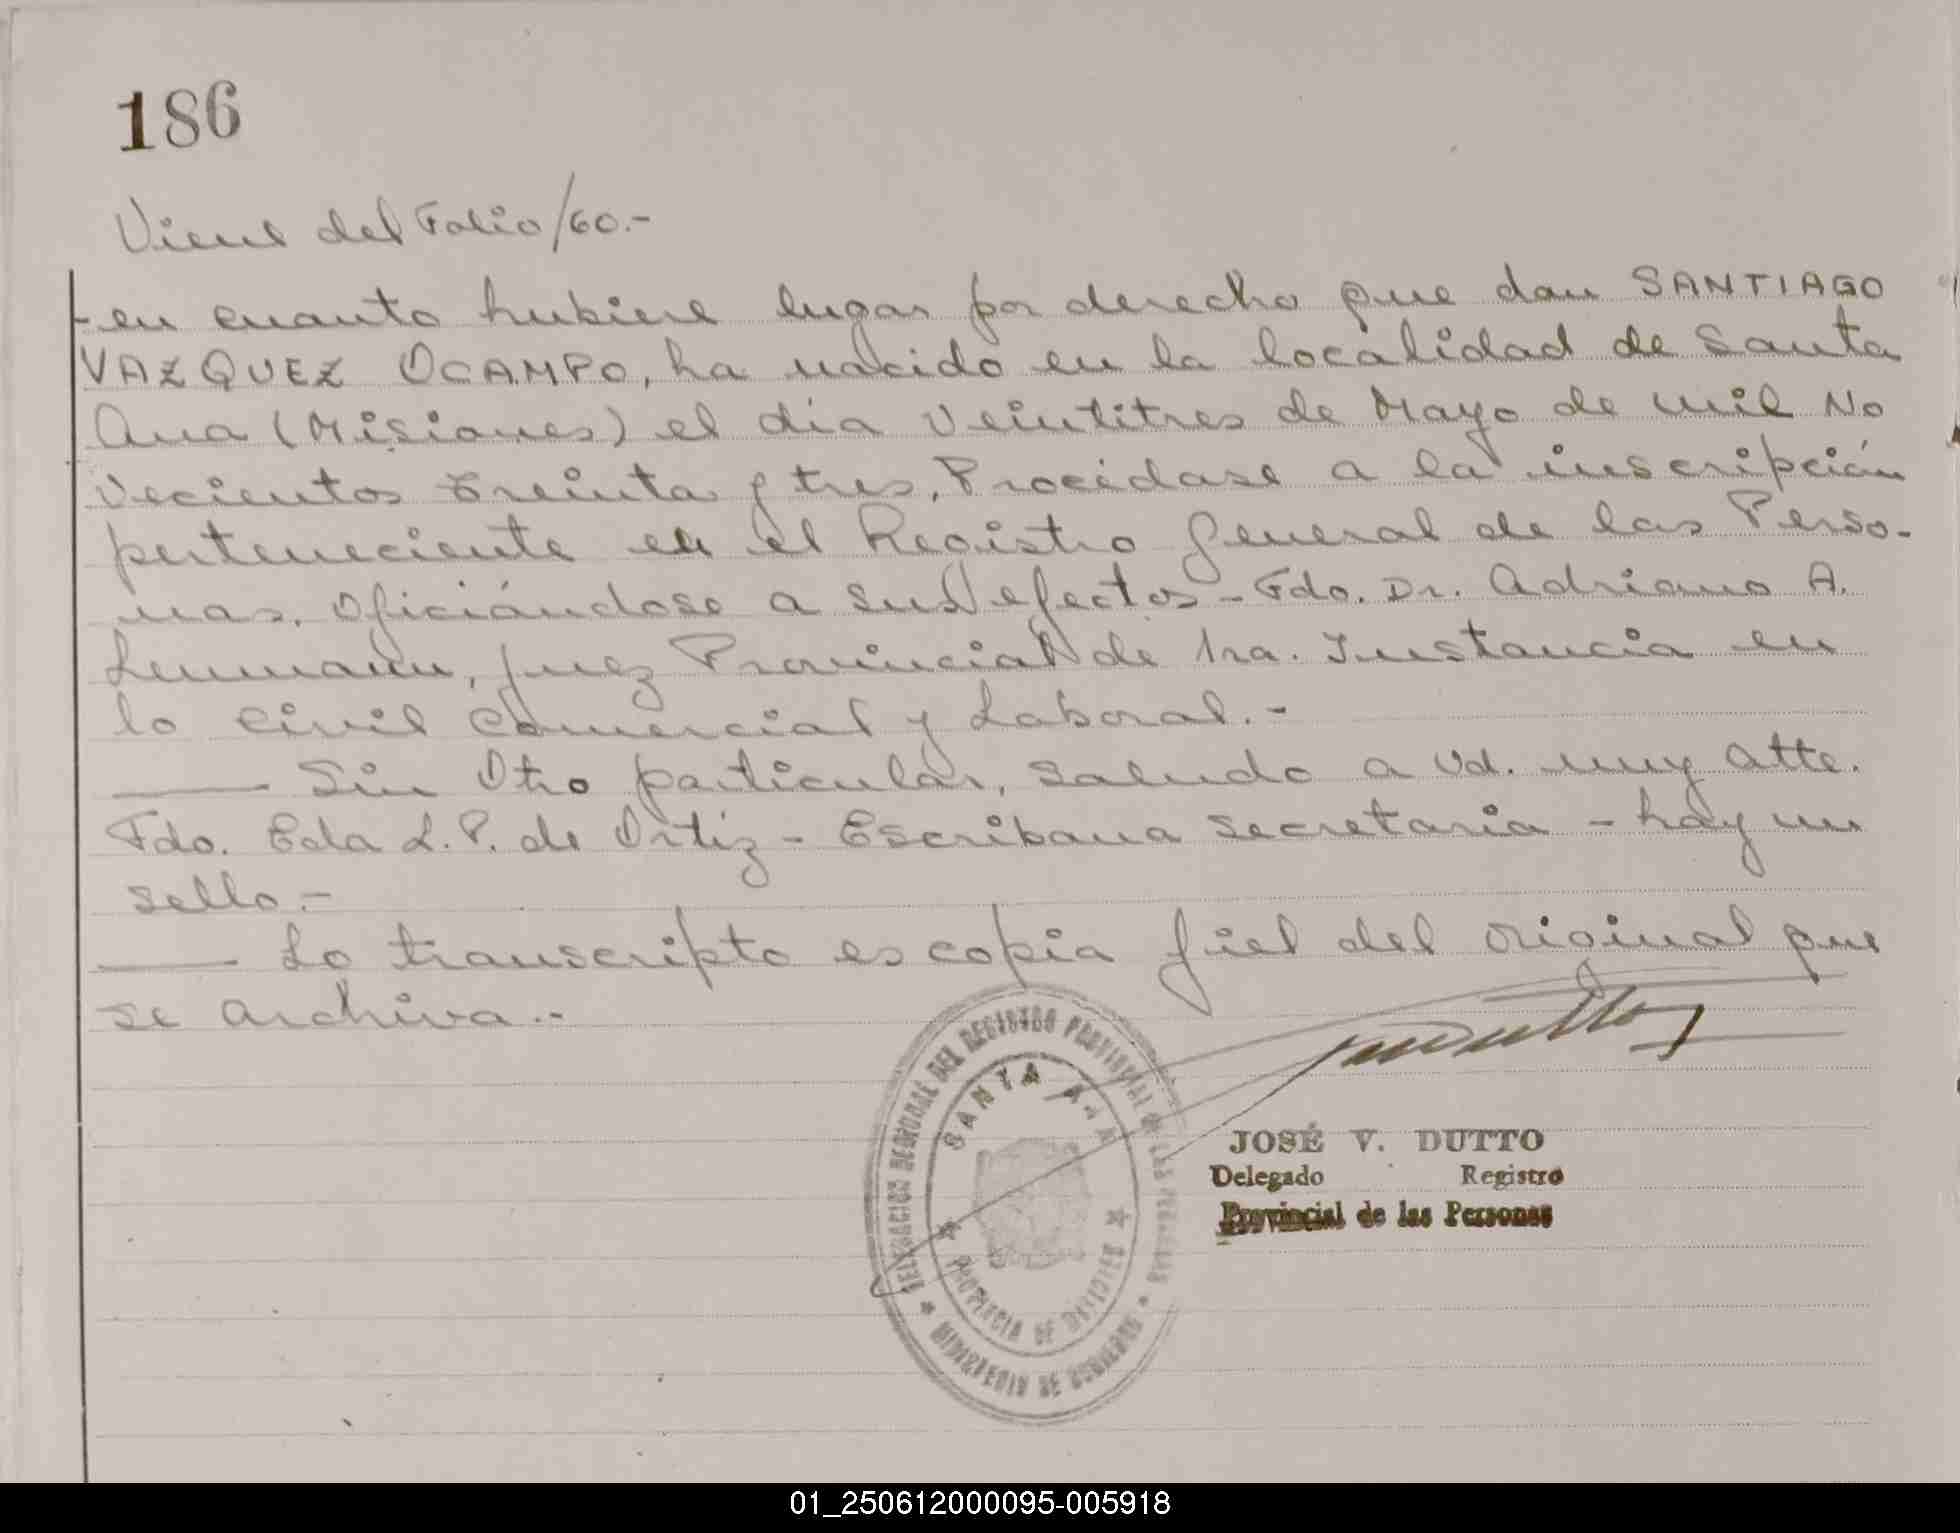 186
Viene del Folio/60.-
-en cuanto hubiere lugar por derecho que dan SANTIAGO
VAZQUEZ OCAMPO, ha nacido en la localidad de Santa
Ana (Misiones) el día Veintitres de Mayo de mil No
vecientos treinta y tres. Procédase a la inscripción
perteneciente en el Registro General de las Perso-
nas. Oficiándose a sus efectos - Fdo. Dr. Adriano A.
Lenmann, Juez Provincial de 1ra. Instancia en
lo Civil Comercial y Laboral.-
Sin Otro particular, saludo a Ud. muy Atte.
Fdo. Eda L. P. de Ortiz - Escribana Secretaria - hay un
sello.-
Lo transcripto es copia fiel del original que
se archiva.-
DELEGACION SECCIONAL DEL REGISTRO PROVINCIAL DE LAS PERSONAS
SANTA ANA
PROVINCIA DE MISIONES
MINISTERIO DE GOBIERNO
JOSÉ V. DUTTO
Delegado Registro
Provincial de las Personas
01_250612000095-005918